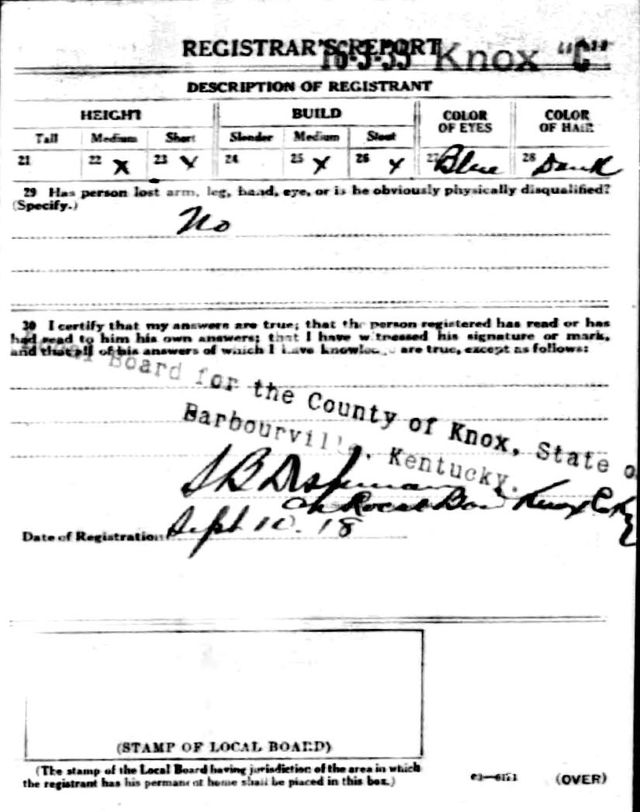 REGISTRAR'S REPORT
16-3-35 Knox "C"
DESCRIPTION OF REGISTRANT
HEIGHT BUILD COLOR OF EYES COLOR OF HAIR
Tall Medium Short Slender Medium Stout
21 22 x 23 x 24 25 x 26 x 27 Blue 28 Dark
29 Has person lost arm, leg, hand, eye, or is he obviously physically disqualified?
(Specify.)
No
30 I certify that my answers are true; that the person registered has read or has
had read to him his own answers; that I have witnessed his signature or mark,
and that all of his answers of which I have knowledge are true, except as follows:
Local Board for the County of Knox, State of
Barbourville, Kentucky.
S B Dishman
Ch Local Board Knox Co Ky
Date of Registration Sept 10. 18
(STAMP OF LOCAL BOARD)
(The stamp of the Local Board having jurisdiction of the area in which
the registrant has his permanent home shall be placed in this box.)
(OVER)